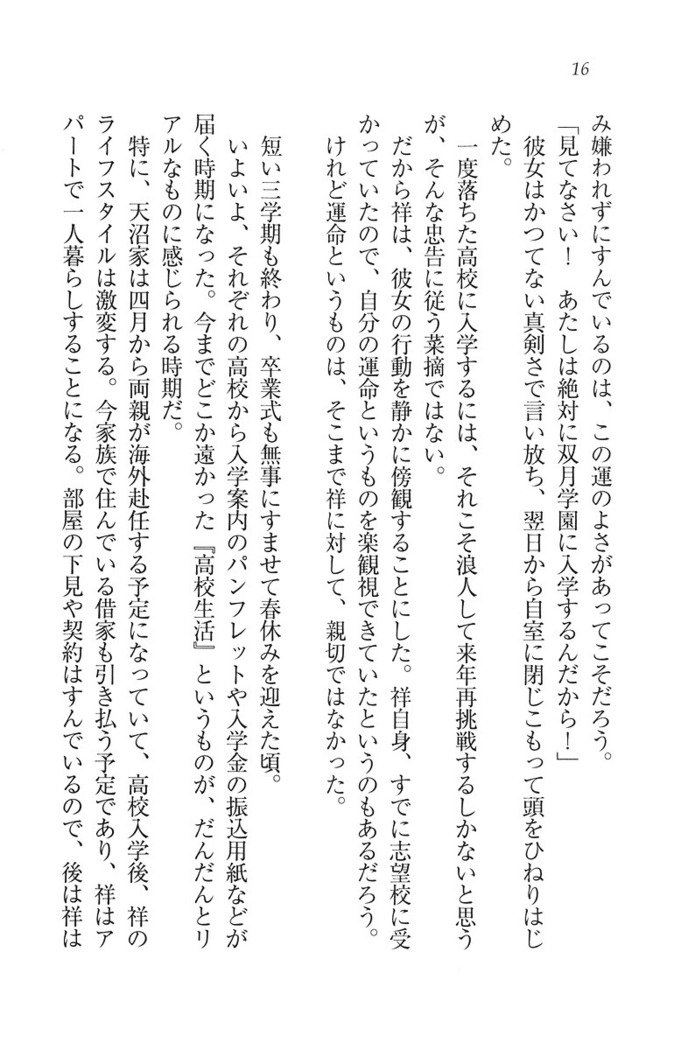 16
み嫌われずにすんでいるのは、この運のよさがあってこそだろう。
「見てなさい！　あたしは絶対に双月学園に入学するんだから！」
　彼女はかつてない真剣さで言い放ち、翌日から自室に閉じこもって頭をひねりはじ
めた。
　一度落ちた高校に入学するには、それこそ浪人して来年再挑戦するしかないと思う
が、そんな忠告に従う菜摘ではない。
　だから祥は、彼女の行動を静かに傍観することにした。祥自身、すでに志望校に受
かっていたので、自分の運命というものを楽観視できていたというのもあるだろう。
　けれど運命というものは、そこまで祥に対して、親切ではなかった。
　短い三学期も終わり、卒業式も無事にすませて春休みを迎えた頃。
　いよいよ、それぞれの高校から入学案内のパンフレットや入学金の振込用紙などが
届く時期になった。今までどこか遠かった『高校生活』というものが、だんだんとリ
アルなものに感じられる時期だ。
　特に、天沼家は四月から両親が海外赴任する予定になっていて、高校入学後、祥の
ライフスタイルは激変する。今家族で住んでいる借家も引き払う予定であり、祥はア
パートで一人暮らしすることになる。部屋の下見や契約はすんでいるので、後は祥は